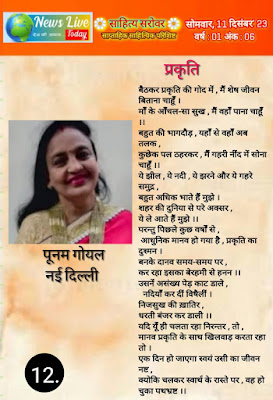 News Live
Today
देश की आवाज
साहित्य सरोवर
साप्ताहिक साहित्यिक परिशिष्ट
सोमवार, 11 दिसंबर 23
वर्ष : 01 अंक : 06
प्रकृति
बैठकर प्रकृति की गोद में , मैं शेष जीवन
बिताना चाहूँ ।
माँ के आँचल-सा सुख , मैं वहाँ पाना चाहूँ
।।
बहुत की भागदौड़ , यहाँ से वहाँ अब
तलक ,
कुछेक पल ठहरकर , मैं गहरी नींद में सोना
चाहूँ ।।
ये झील , ये नदी , ये झरने और ये गहरे
समुद्र ,
बहुत अधिक भाते हैं मुझे ।
शहर की दुनिया से परे अक्सर ,
ये ले आते हैं मुझे ।।
परन्तु पिछले कुछ वर्षों से ,
आधुनिक मानव हो गया है , प्रकृति का
दुश्मन ।
बनके दानव समय-समय पर ,
कर रहा इसका बेरहमी से हनन ।।
उसनें असंख्य पेड़ काट डाले ,
नदियाँ कर दीं विषैलीं ।
निजसुख की ख़ातिर ,
धरती बंजर कर डाली ।।
यदि यूँ ही चलता रहा निरन्तर , तो ,
मानव प्रकृति के साथ खिलवाड़ करता रहा
तो ।
एक दिन हो जाएगा स्वयं उसी का जीवन
नष्ट ,
क्योंकि चलकर स्वार्थ के रास्ते पर , वह हो
चुका पथभ्रष्ट ।।
पूनम गोयल
नई दिल्ली
12.